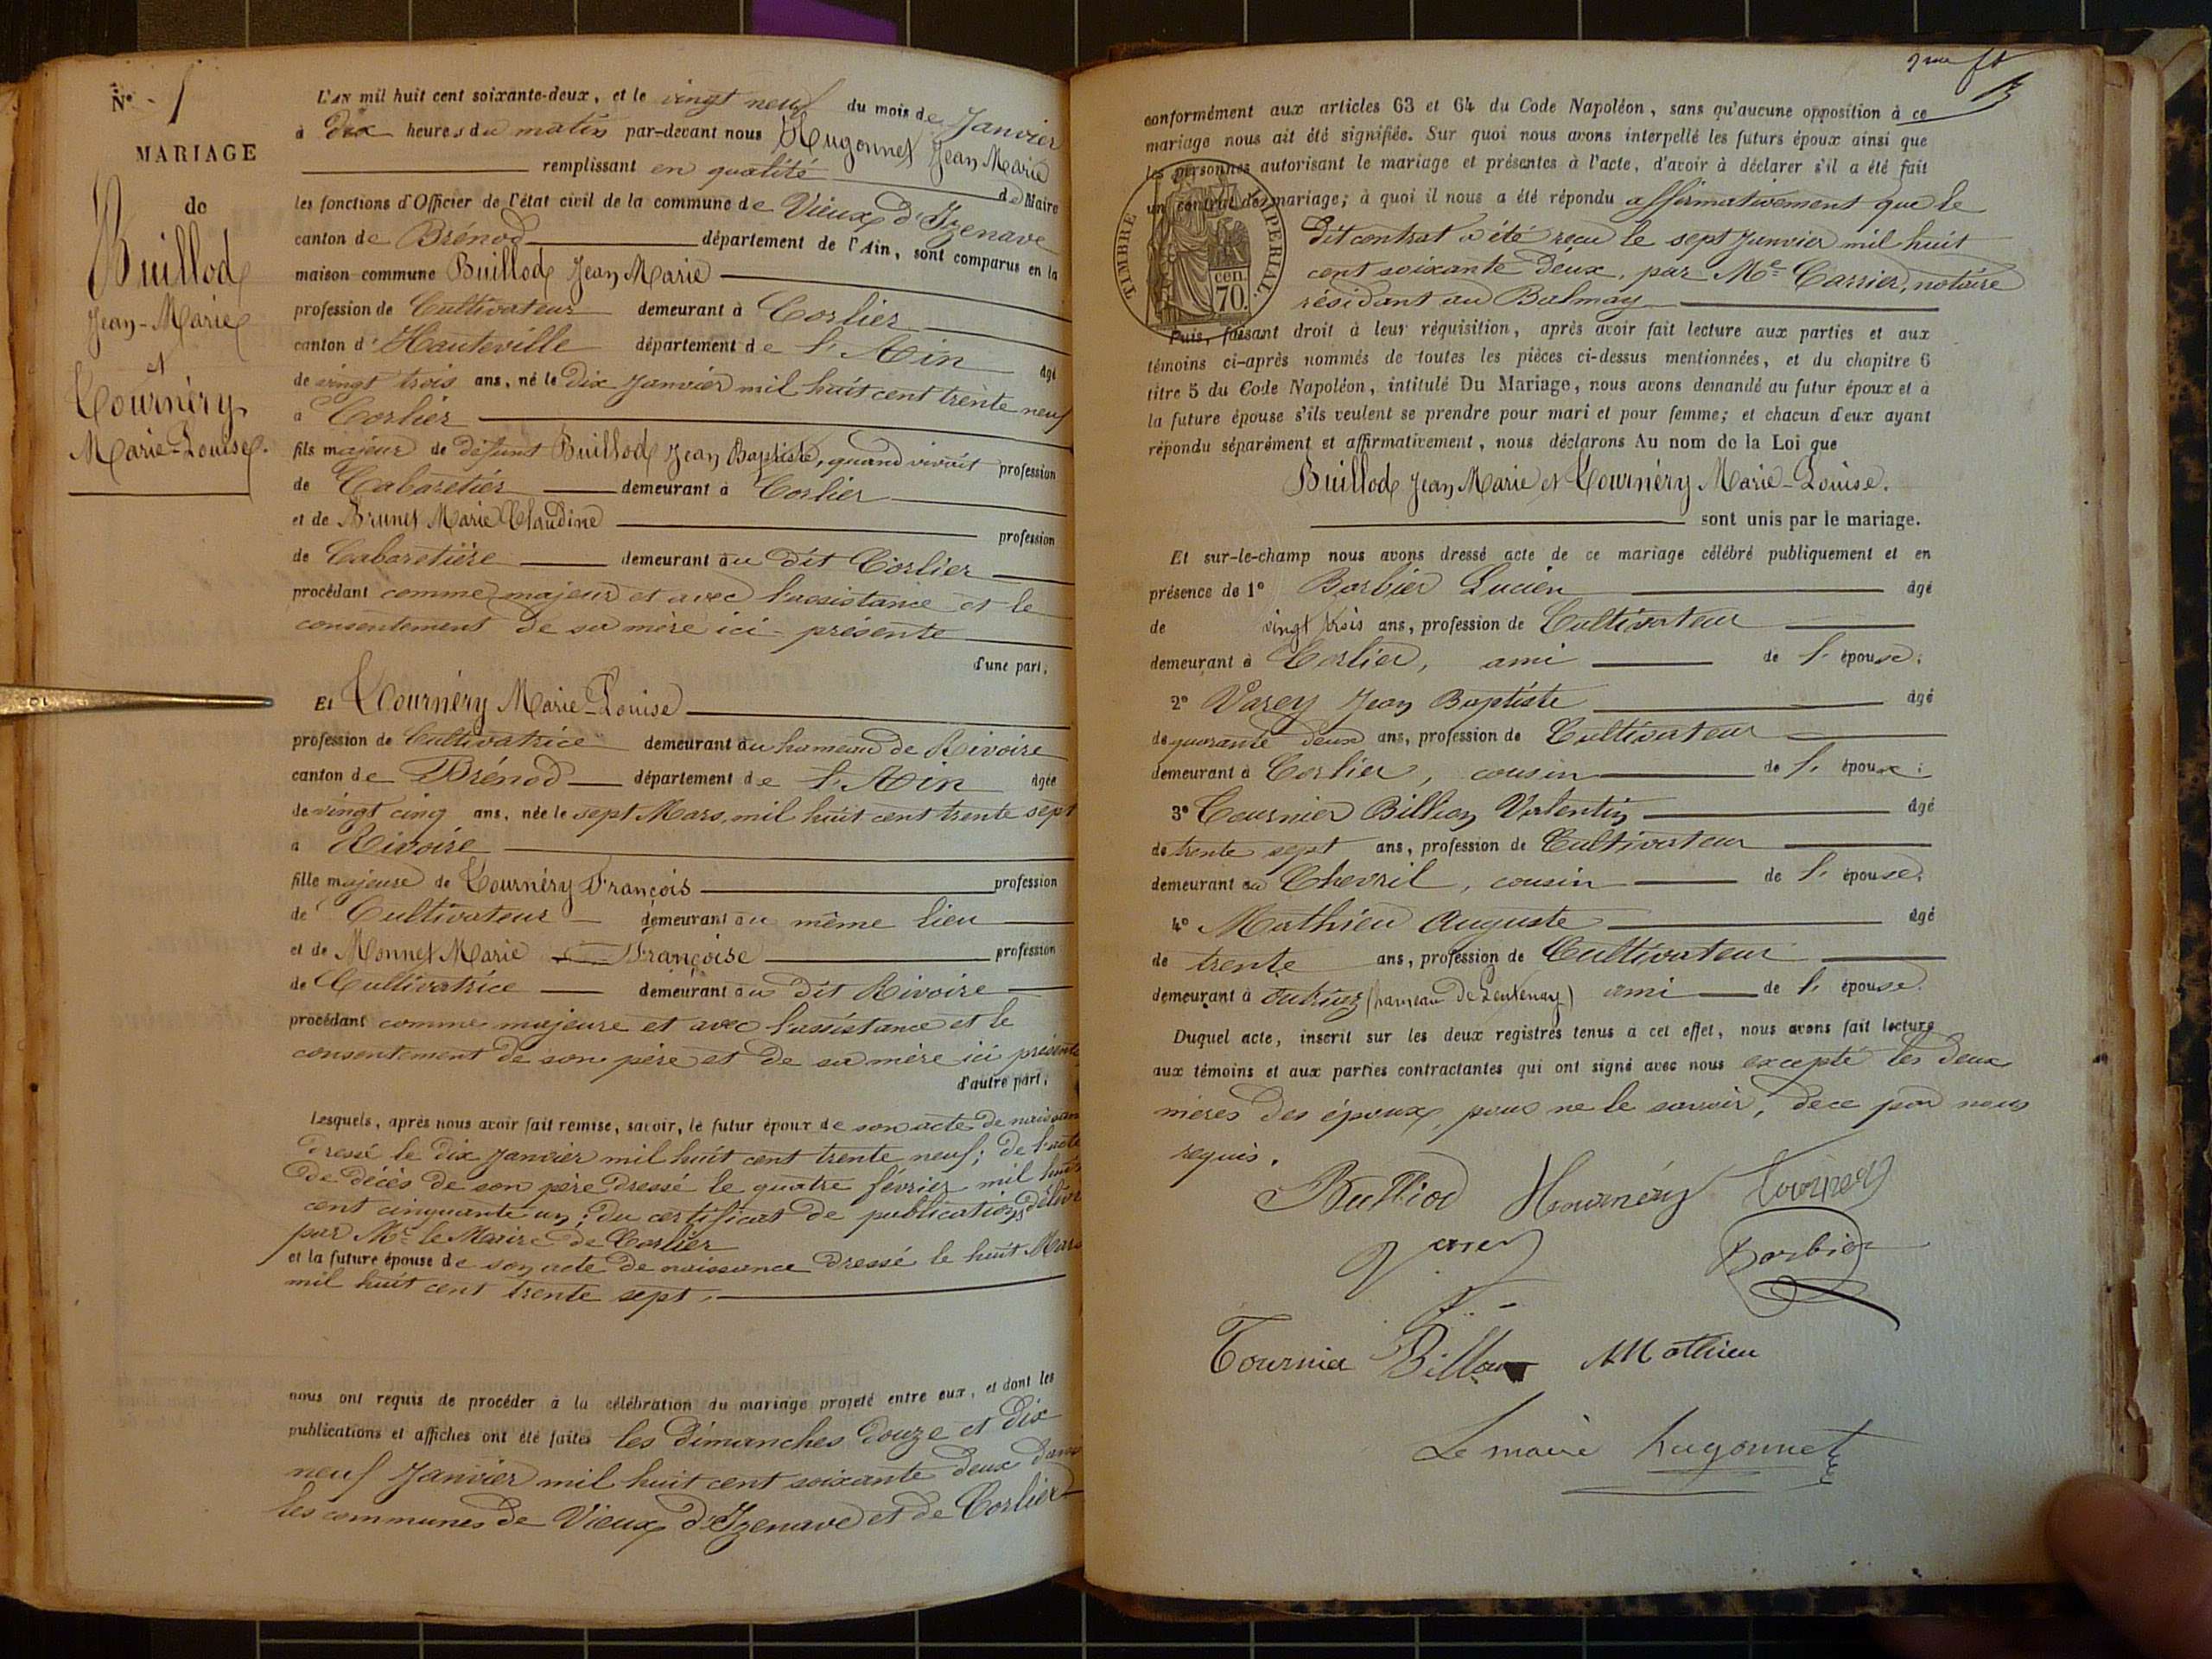 N° 1
MARIAGE
de
Buillod
Jean-Marie
et
Tournéry
Marie-Louise.
L'AN mil huit cent soixante-deux, et le vingt neuf du mois de Janvier
à dix heures du matin par-devant nous Hugonnet Jean Marie
remplissant en qualité de Maire
les fonctions d'Officier de l'état civil de la commune de Vieux d'Izenave
canton de Brénod département de l'Ain, sont comparus en la
maison commune Buillod Jean Marie
profession de Cultivateur demeurant à Corlier
canton d'Hauteville département de l'Ain âgé
de vingt trois ans, né le dix Janvier mil huit cent trente neuf
à Corlier
fils majeur de défunt Buillod Jean Baptiste, quand vivait profession
de Cabaretier demeurant à Corlier
et de Brunet Marie Claudine profession
de Cabaretière demeurant au dit Corlier
procédant comme majeur et avec l'assistance et le
consentement de sa mère ici présente
d'une part,
Et Tournéry Marie-Louise
profession de Cultivatrice demeurant au hameau de Rivoire
canton de Brénod département de l'Ain âgée
de vingt cinq ans, née le sept Mars, mil huit cent trente sept
à Rivoire
fille majeure de Tournéry François profession
de Cultivateur demeurant au même lieu
et de Monnet Marie Françoise profession
de Cultivatrice demeurant au dit Rivoire
procédant comme majeure et avec l'assistance et le
consentement de son père et de sa mère ici présente
d'autre part,
Lesquels, après nous avoir fait remise, savoir, le futur époux de son acte de naissan
dressé le dix Janvier mil huit cent trente neuf; de l'acte
de décès de son père dressé le quatre février mil huit
cent cinquante un; du certificat de publications délivré
par Mr le Maire de Corlier
et la future épouse de son acte de naissance dressé le huit Mars
mil huit cent trente sept.
nous ont requis de procéder à la célébration du mariage projeté entre eux, et dont les
publications et affiches ont été faites les dimanches douze et dix
neuf Janvier mil huit cent soixante deux dans
les communes de Vieux d'Izenave et de Corlier
2me ft
conformément aux articles 63 et 64 du Code Napoléon, sans qu'aucune opposition à ce
mariage nous ait été signifiée. Sur quoi nous avons interpellé les futurs époux ainsi que
les personnes autorisant le mariage et présentes à l'acte, d'avoir à déclarer s'il a été fait
un contrat de mariage; à quoi il nous a été répondu affirmativement que le
dit contrat a été reçu le sept Janvier mil huit
cent soixante deux, par Me Carrier, notaire
résidant au Balmay
TIMBRE IMPÉRIAL
70 cen.
Puis, faisant droit à leur réquisition, après avoir fait lecture aux parties et aux
témoins ci-après nommés de toutes les pièces ci-dessus mentionnées, et du chapitre 6
titre 5 du Code Napoléon, intitulé Du Mariage, nous avons demandé au futur époux et à
la future épouse s'ils veulent se prendre pour mari et pour femme; et chacun d'eux ayant
répondu séparément et affirmativement, nous déclarons Au nom de la Loi que
Buillod Jean Marie et Tournéry Marie-Louise.
sont unis par le mariage.
Et sur-le-champ nous avons dressé acte de ce mariage célébré publiquement et en
présence de 1° Barbier Lucien âgé
de vingt trois ans, profession de Cultivateur
demeurant à Corlier, ami de l'épouse;
2° Varey Jean Baptiste âgé
de quarante deux ans, profession de Cultivateur
demeurant à Corlier, cousin de l'époux;
3° Tournier Billion Valentin âgé
de trente sept ans, profession de Cultivateur
demeurant au Chevril, cousin de l'épouse;
4° Mathieu Auguste âgé
de trente ans, profession de Cultivateur
demeurant à Outriaz (hameau de Lentenay) ami de l'épouse.
Duquel acte, inscrit sur les deux registres tenus à cet effet, nous avons fait lecture
aux témoins et aux parties contractantes qui ont signé avec nous excepté les deux
mères des époux, pour ne le savoir, de ce par nous
requis.
Bulliod Tournéry Tournery
Varey Barbier
Tournier Billion AMathieu
Le maire hugonnet